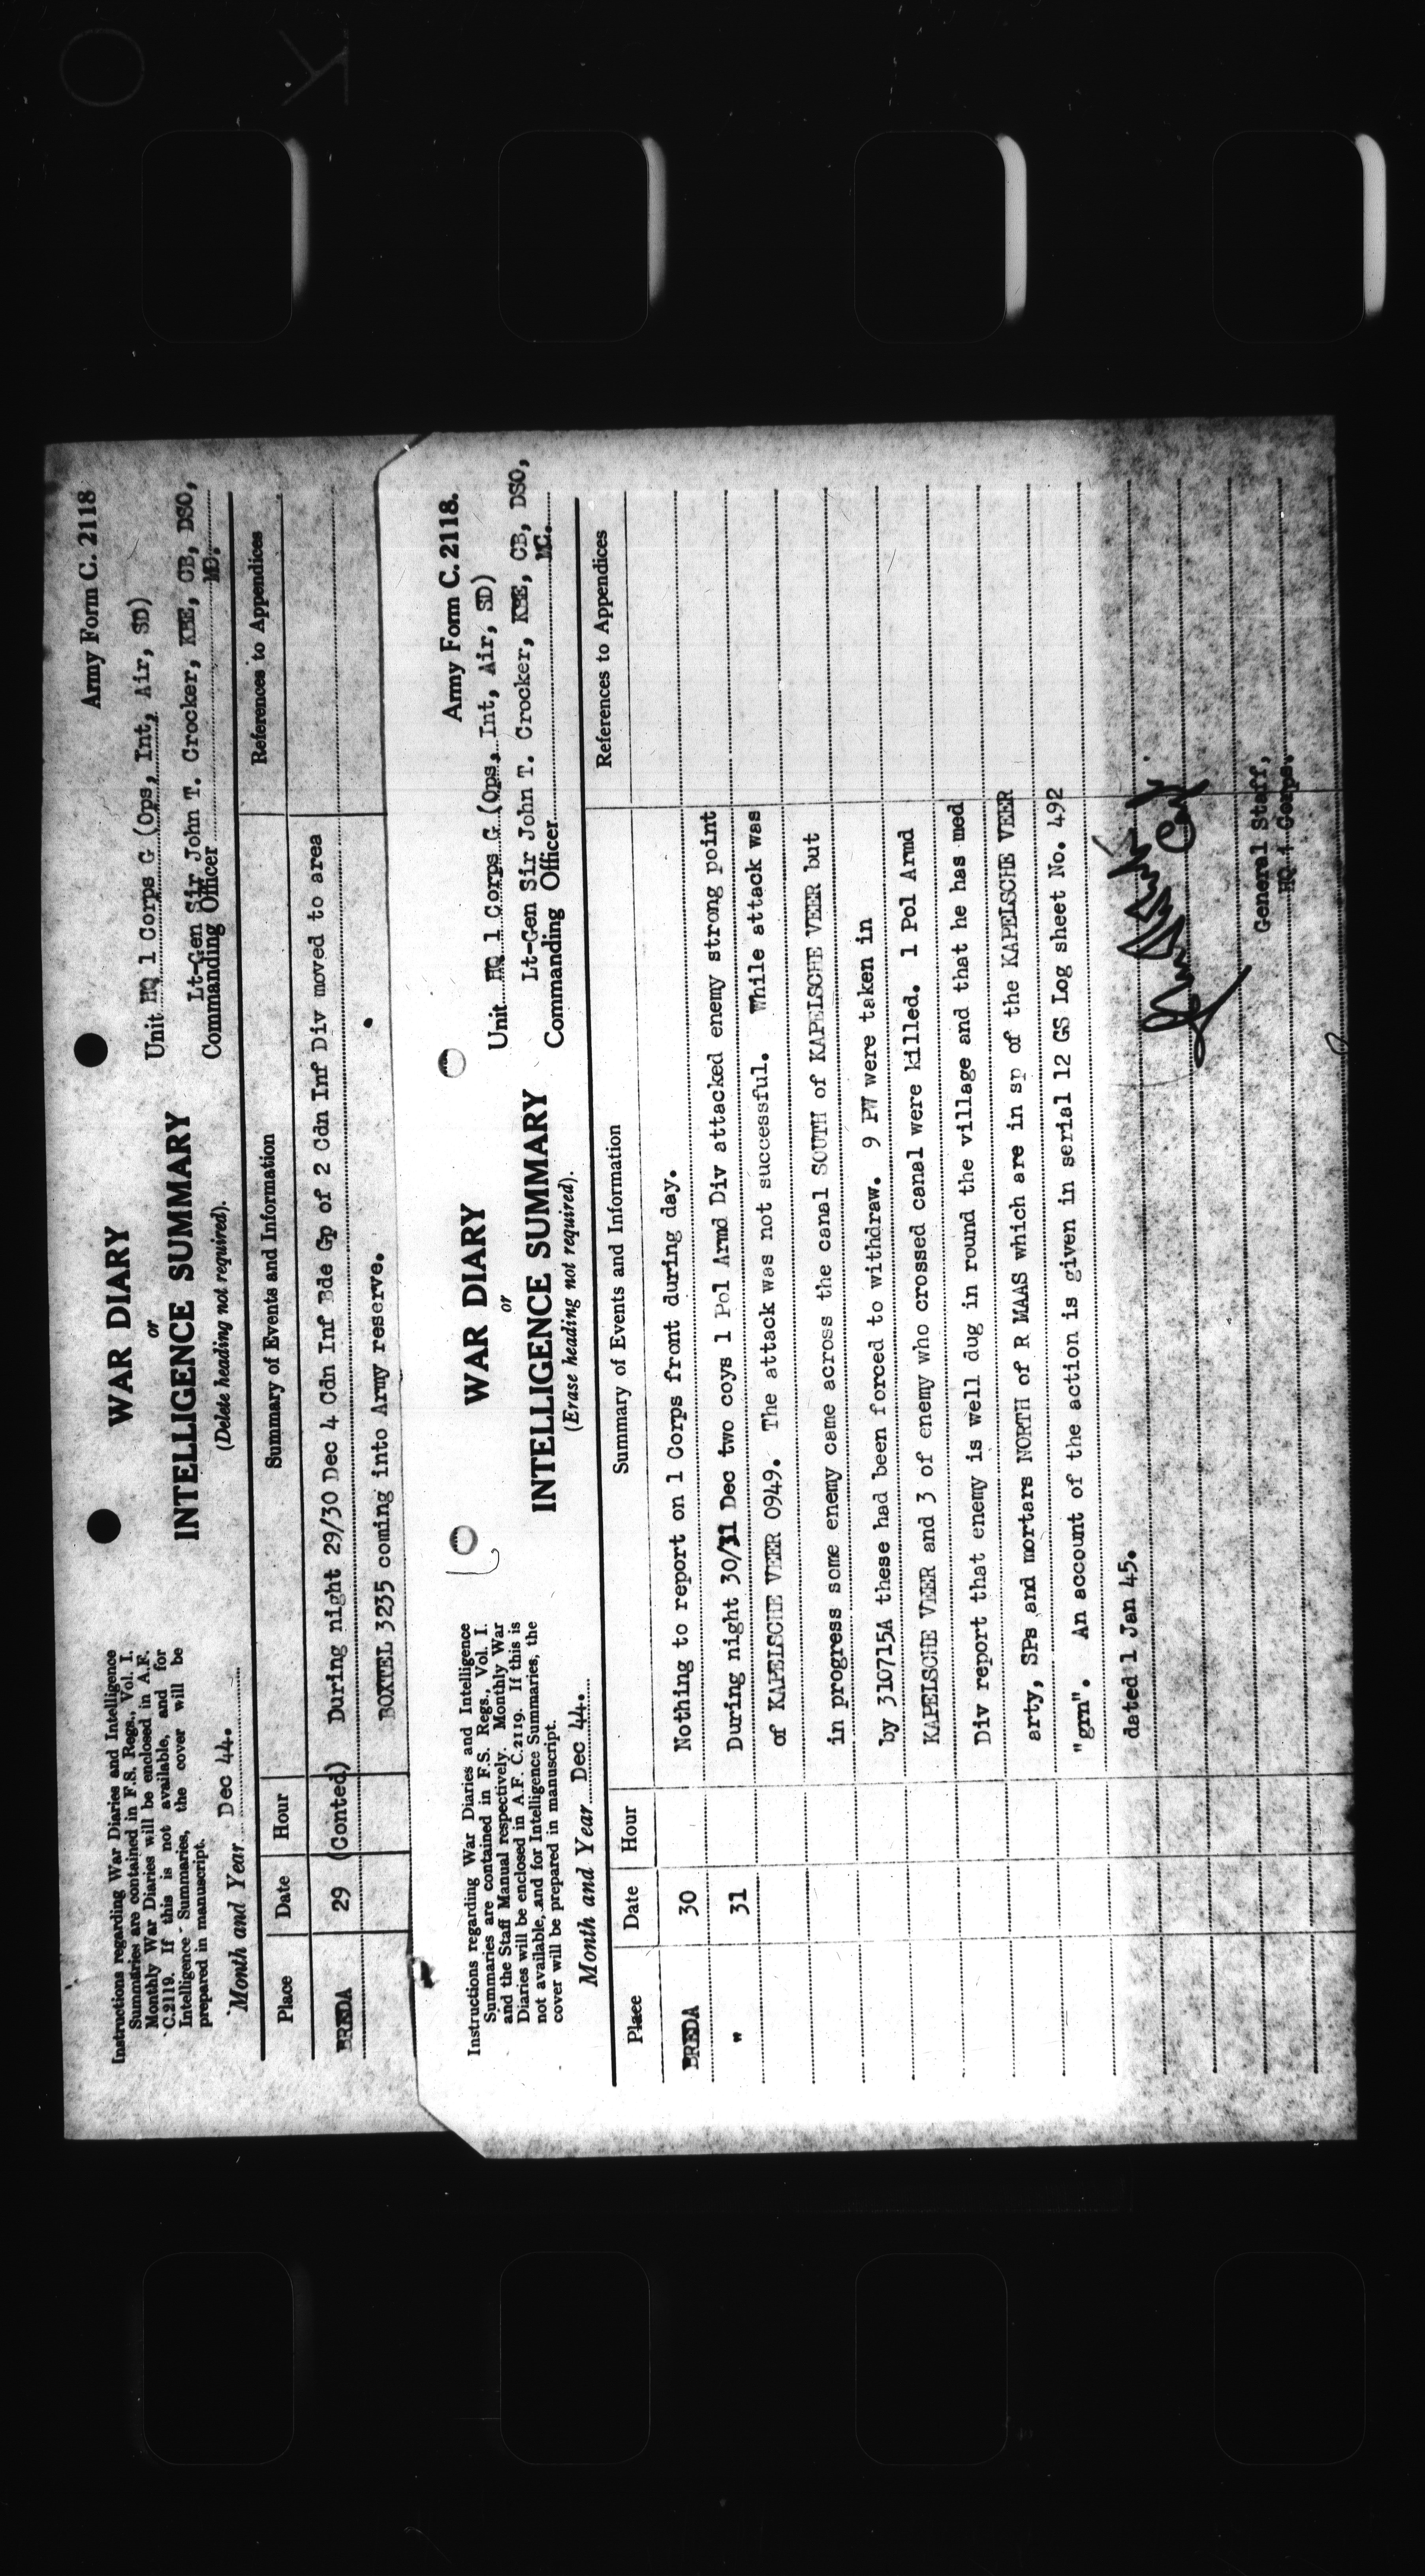 Army Form C. 2118
WAR DIARY
or
INTELLIGENCE SUMMARY
(Delete heading not required).
Instructions regarding War Diaries and Intelligence
Summaries are contained in F.S. Regs., Vol. I.
Monthly War Diaries will be enclosed in A.F.
C.2119. If this is not available, and for
Intelligence Summaries, the cover will be
prepared in manuscript.
Month and Year Dec 44.
Unit HQ 1 Corps G (Ops, Int, Air, SD)
Lt-Gen Sir John T. Crocker, KBE, CB, DSO,
Commanding Officer MC.
Place Date Hour Summary of Events and Information References to Appendices
BREDA 29 (Conted) During night 29/30 Dec 4 Cdn Inf Bde Gp of 2 Cdn Inf Div moved to area
BOXTEL 3235 coming into Army reserve.
Army Form C. 2118.
WAR DIARY
or
INTELLIGENCE SUMMARY
(Erase heading not required).
Instructions regarding War Diaries and Intelligence
Summaries are contained in F.S. Regs., Vol. I.
and the Staff Manual respectively. Monthly War
Diaries will be enclosed in A.F. C.2119. If this is
not available, and for Intelligence Summaries, the
cover will be prepared in manuscript.
Month and Year Dec 44.
Unit HQ 1 Corps G (Ops, Int, Air, SD)
Lt-Gen Sir John T. Crocker, KBE, CB, DSO,
Commanding Officer MC.
Place Date Hour Summary of Events and Information References to Appendices
BREDA 30 Nothing to report on 1 Corps front during day.
" 31 During night 30/31 Dec two coys 1 Pol Armd Div attacked enemy strong point
of KAPELSCHE VEER 0949. The attack was not successful. While attack was
in progress some enemy came across the canal SOUTH of KAPELSCHE VEER but
by 310715A these had been forced to withdraw. 9 PW were taken in
KAPELSCHE VEER and 3 of enemy who crossed canal were killed. 1 Pol Armd
Div report that enemy is well dug in round the village and that he has med
arty, SPs and mortars NORTH of R MAAS which are in sp of the KAPELSCHE VEER
"grn". An account of the action is given in serial 12 GS Log sheet No. 492
dated 1 Jan 45.
General Staff,
HQ 1 Corps.